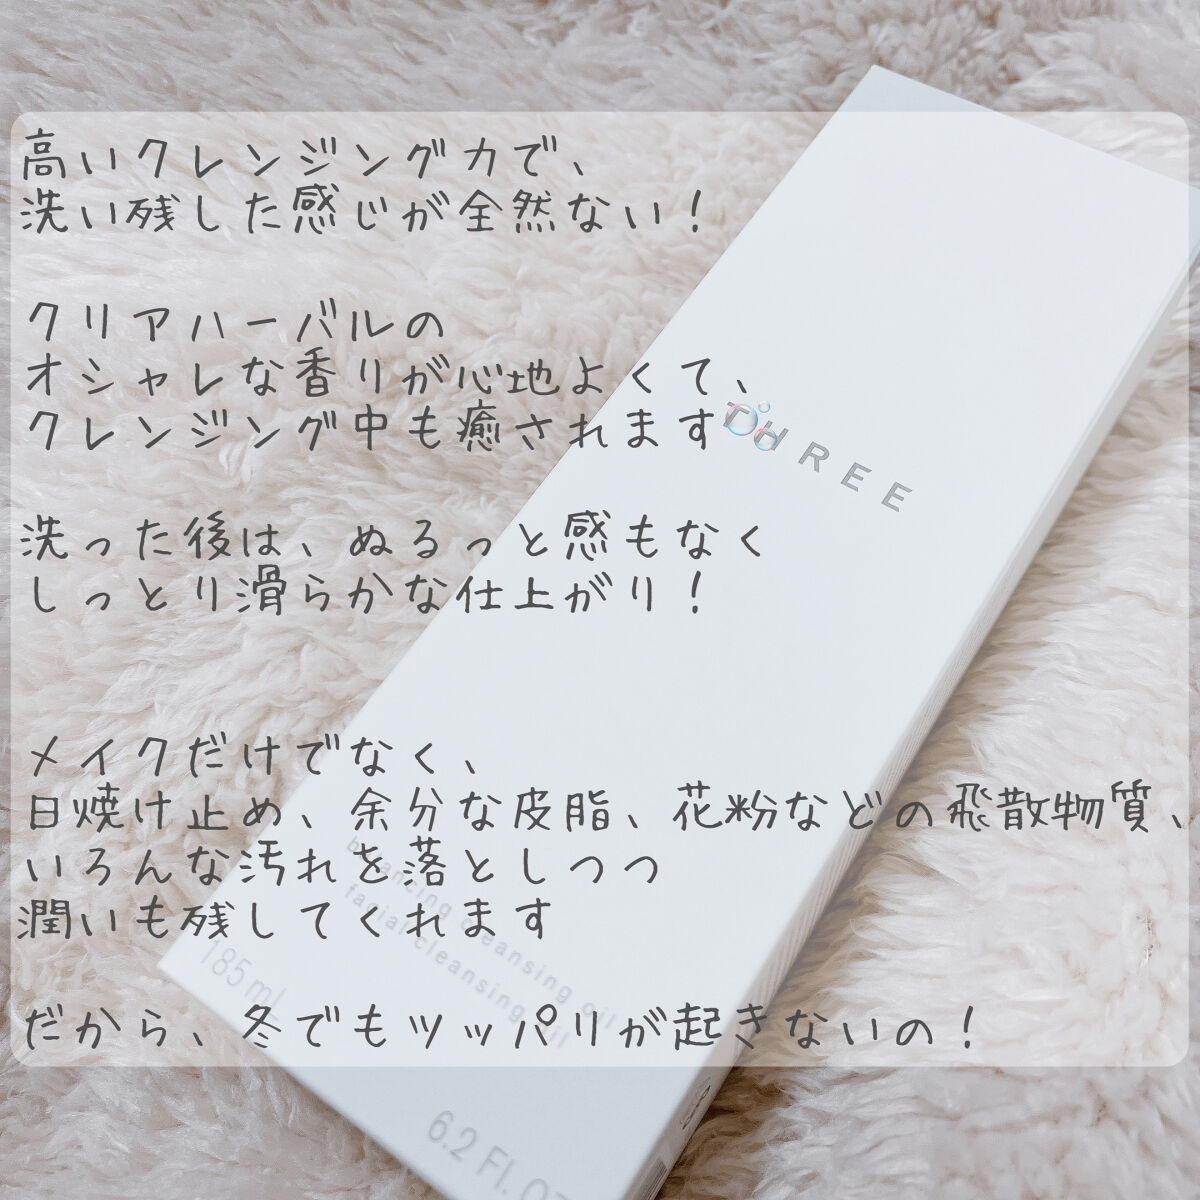 高いクレンジング力で、
洗い残した感じが全然ない！
クリアハーバルの
オシャレな香りが心地よくて、
クレンジング中も癒されます
THREE
洗った後は、ぬるっと感もなく
しっとり滑らかな仕上がり！
メイクだけでなく、
日焼け止め、余分な皮脂、花粉などの飛散物質、
いろんな汚れを落としつつ
潤いも残してくれます
balancing cleansing oil
facial cleansing oil
185 mL
だから、冬でもツッパリが起きないの！
6.2 Fl. OZ